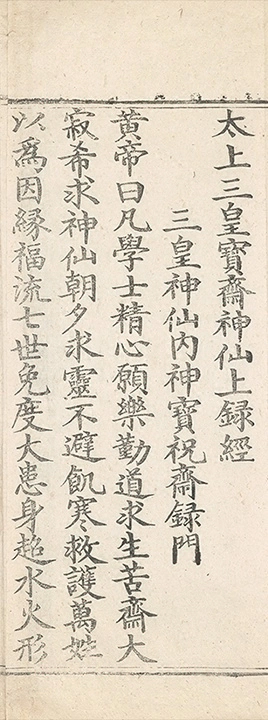 太上三皇寶齋神仙上録經
三皇神仙内神寶祝齋録門
黄帝曰凡學士精心願樂勤道求生苦齋大
寂希求神仙朝夕求靈不避飢寒救護萬姓
以爲因縁福流七世免度大患身超水火形